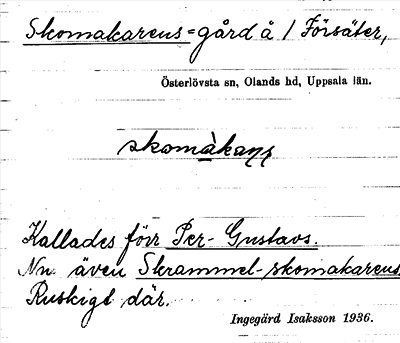 Skomakarens=gård å 1 Försäter,
Österlövsta sn, Olands hd, Uppsala län.
skomàkaṇṣ
Kallades förr Per-Gustavs.
Nn även Skrammel-skomakarens
Ruskigt där.
Ingegärd Isaksson 1936.